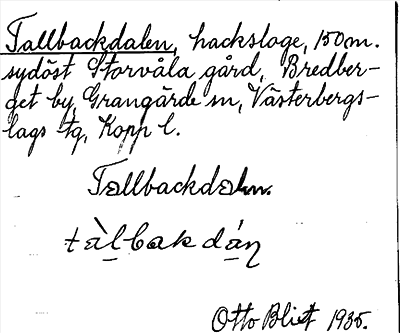 Tallbackdalen, hackslage, 150 m.
sydöst Storvåla gård, Bredber-
get by, Grangärde sn, Västerbergs-
lags tg, Kopp l.
Tallbackdaln.
tàlbakdáṇ
Otto Blixt 1935.